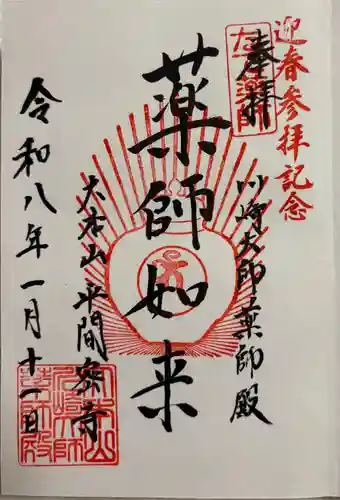 迎春参拝記念
奉拝
川崎大師薬師殿
薬師如来
大本山平間寺
令和八年一月十一日